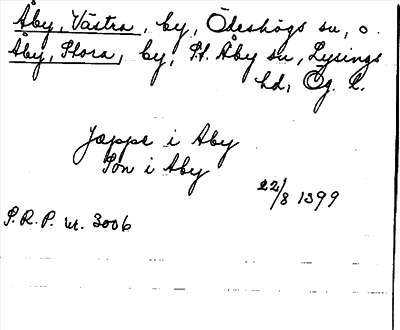 Åby, Västra, by, Ödeshögs sn, o.
Åby, Stora, by, St. Åby sn, Lysings
hd, Ög. l.
Jæppe i Aby
Son i Aby
22/8 1399
S.R.P. nr. 3006